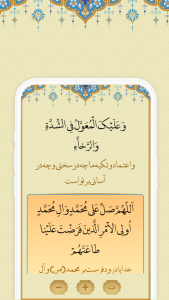 وَعَلَيْكَ الْمُعَوَّلُ فِي الشِّدَّةِ
وَالرَّخاَّءِ
و اعتماد و تکیه ما چه در سختی و چه در
آسانی بر تو است
اَللّهُمَّ صَلِّ عَلى مُحَمَّدٍ وَالِ مُحَمَّدٍ
اُولِى الاَْمْرِ الَّذينَ فَرَضْتَ عَلَيْنا
طاعَتَهُمْ
خدایا درود فرست بر محمد (ص) و آل